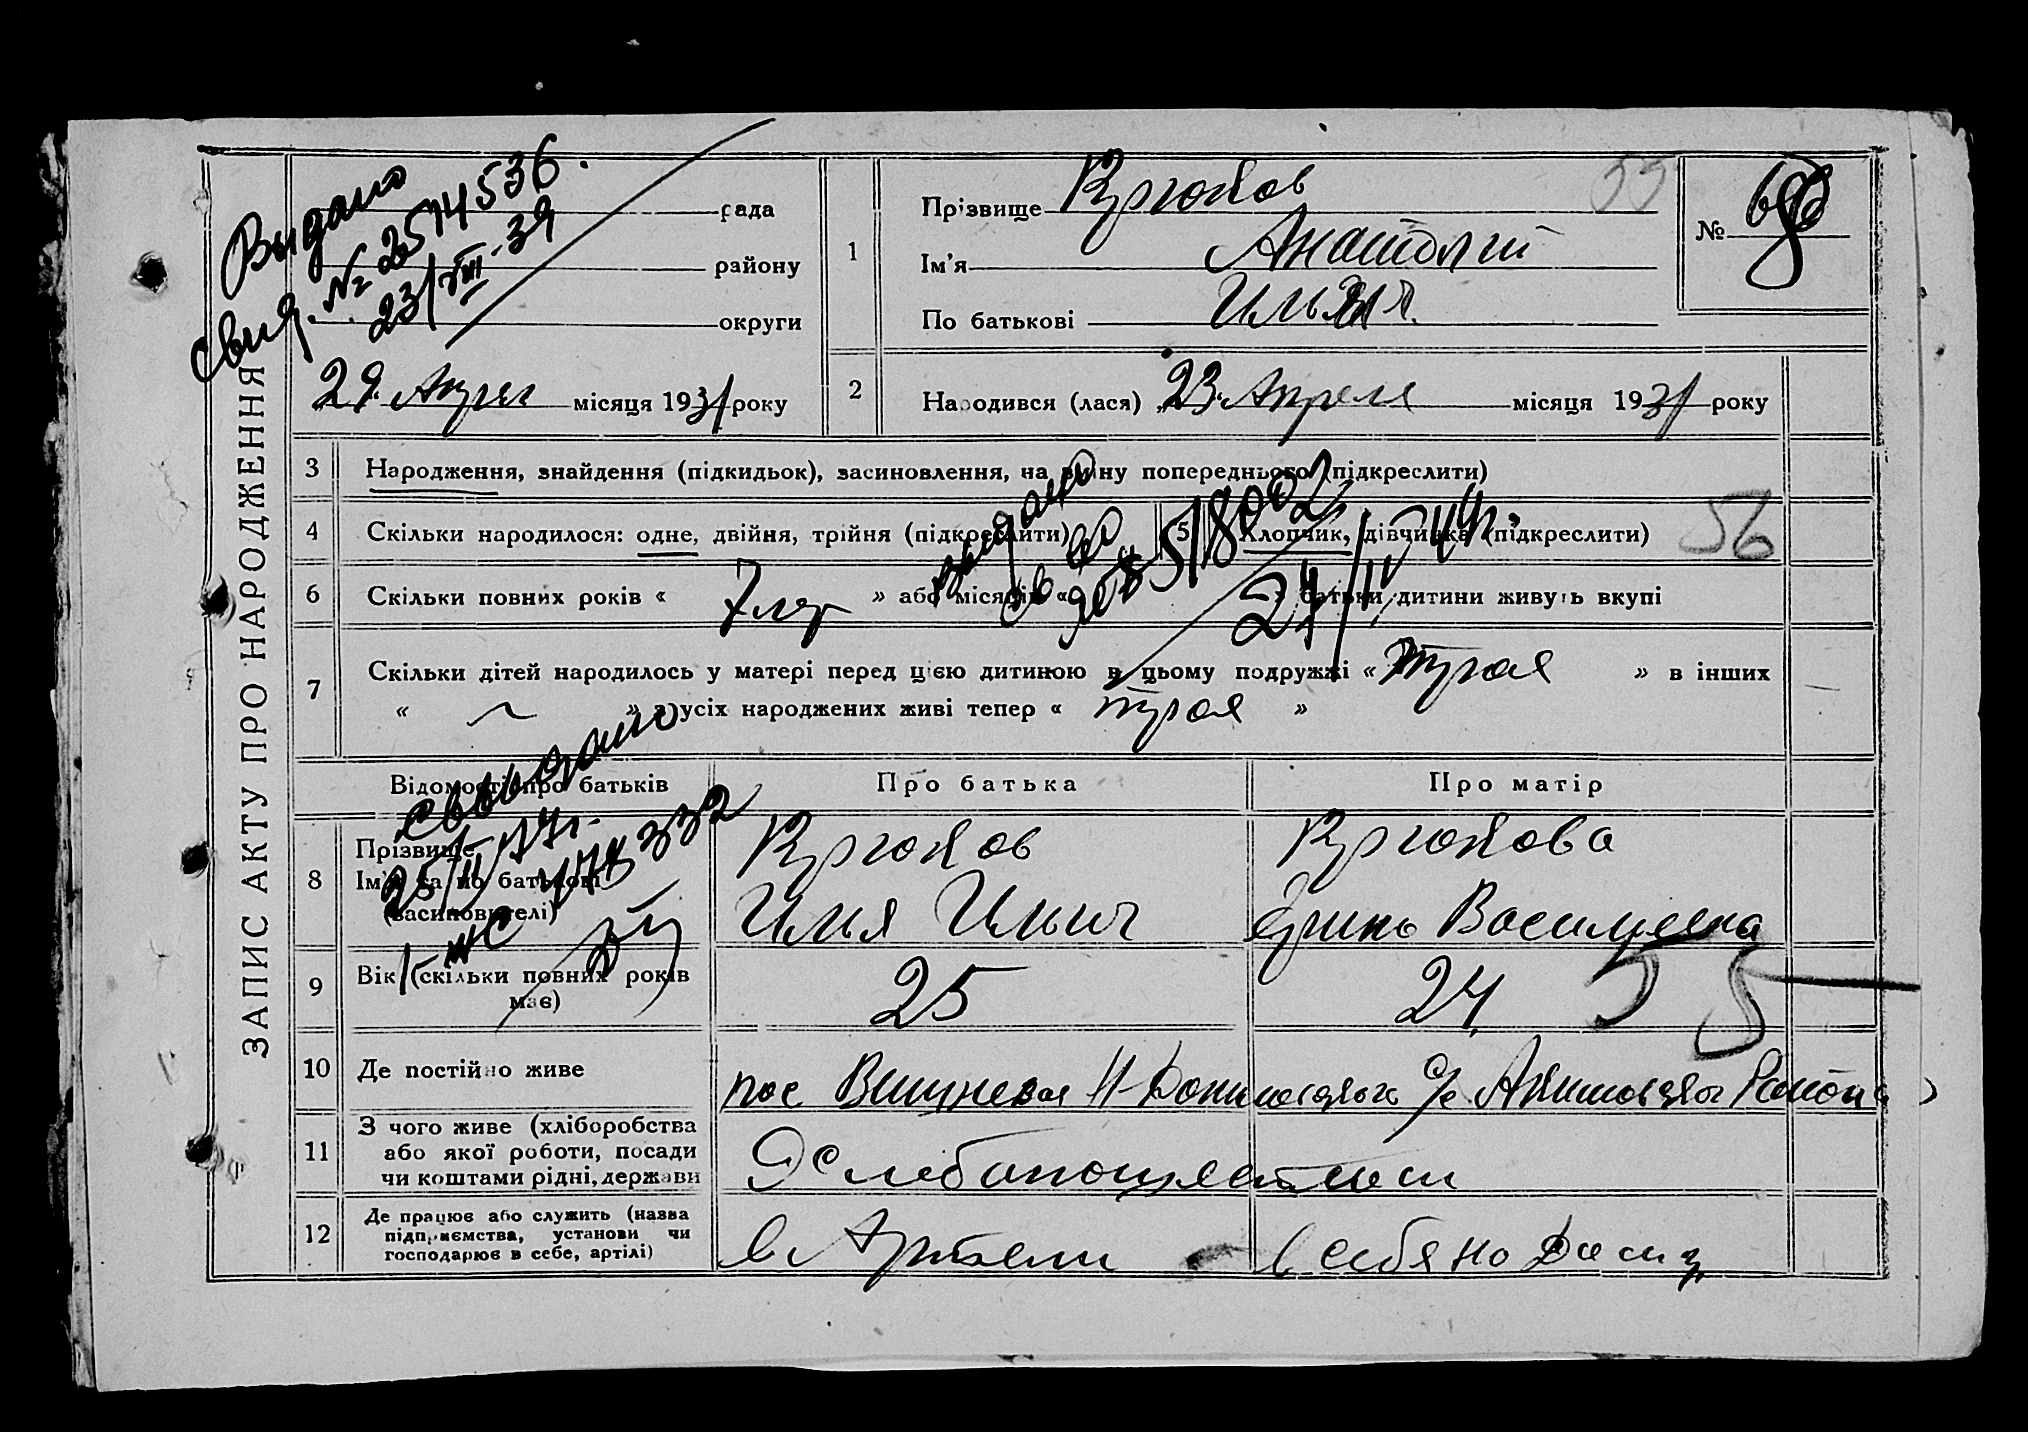 ЗАПИС АКТУ ПРО НАРОДЖЕННЯ
Выдано
свид. № 2514536.
23/VIII-39
рада
району
округи
29. Апреля місяця 1931 року
1
Прізвище Крюков
Ім'я Анатолий
По батькові
№
55
2
Народився (лася) 23. Апреля місяця 1931 року
3 Народження, знайдення (підкидьок), засиновлення, на зміну попереднього (підкреслити)
4 Скільки народилося: одне, двійня, трійня (підкреслити)
5 Хлопчик, дівчинка (підкреслити)
56
выдано
518002
6 Скільки повних років « 7 лет » або місяців « » батьки дитини живуть вкупі
7 Скільки дітей народилось у матері перед цією дитиною в цьому подружжі « » в інших
« — » з усіх народжених живі тепер « »
Відомості про батьків
Про батька
Про матір
8
Прізвище
Ім'я та по батькові
(засиновителі)
Крюков
Илья Ильич
Крюкова
Васильевна
9 Вік (скільки повних років має)
25
24
55
10 Де постійно живе
пос Вишневая Акимовского Района
11 З чого живе (хліборобства
або якої роботи, посади
чи коштами рідні, держави
Хлебопашеством
12 Де працює або служить (назва
підприємства, установи чи
господарює в себе, артілі)
в Артели
в себя на дому